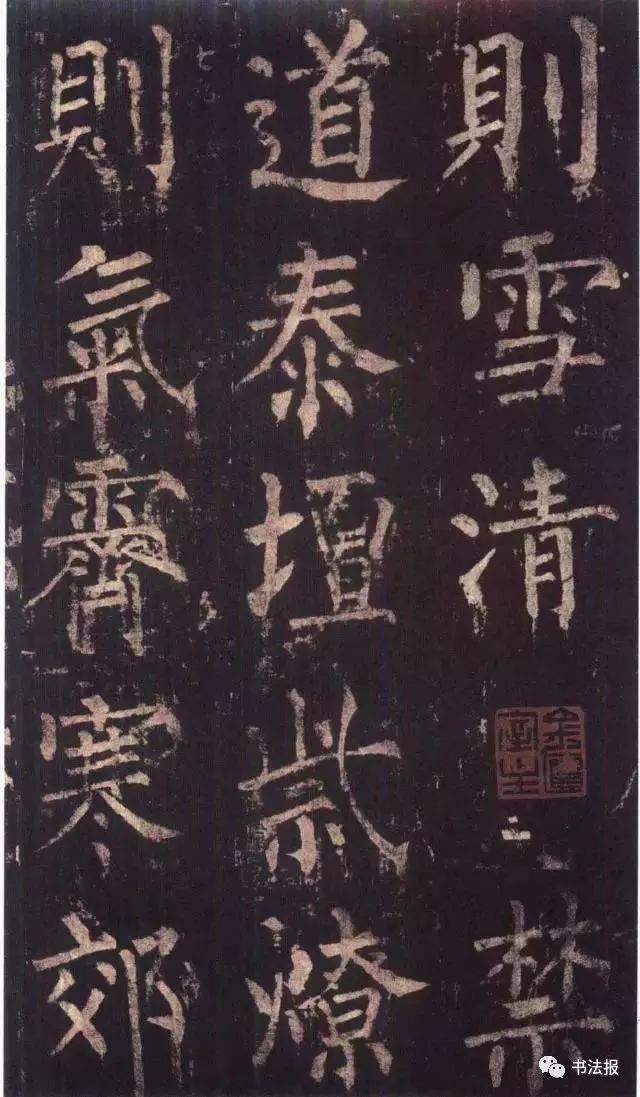 則雪清禁
道泰壇祡燎
則氣霽寒郊
书法报